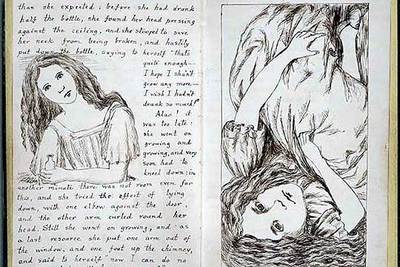 than she expected; before she had drunk
half the bottle, she found her head pressing
against the ceiling, and she stooped to save
her neck from being broken, and hastily
put down the bottle, saying to herself "that's
quite enough—
I hope I shan't
grow any more—
I wish I hadn't
drunk so much!"
Alas! it
was too late:
she went on
growing and
growing, and very
soon had to
kneel down: in
another minute there was not room even for
this, and she tried the effect of lying
down, with one elbow against the door,
and the other arm curled round her
head. Still she went on growing, and as
a last resource she put one arm out of
the window, and one foot up the chimney,
and said to herself "now I can do no